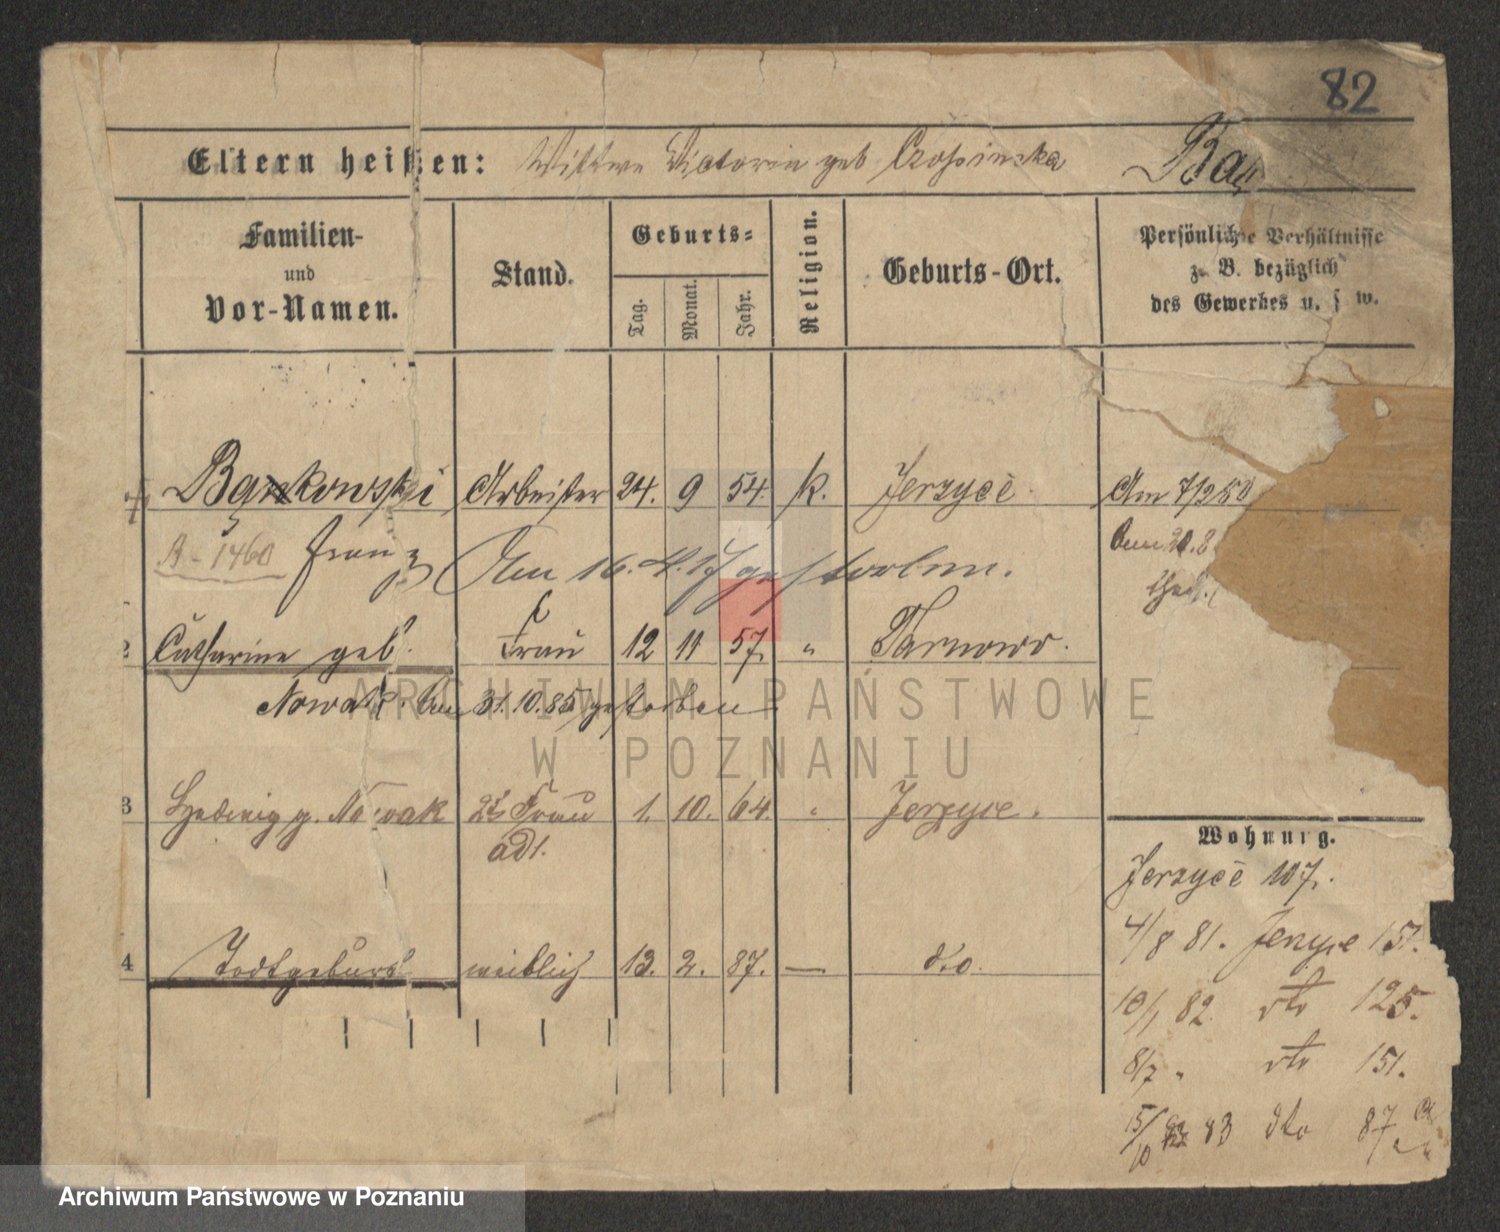 82
Eltern heißen: Wittwe Victoria geb
Familien-
und
Vor-Namen.
Stand.
Geburts-
Tag.
Monat.
Jahr.
Religion.
Geburts-Ort.
Persönliche Verhältnisse
z. B. bezüglich
des Gewerbes u. s w.
Bankowski Arbeiter 24. 9 54. k. Jerzyce Am
A-1460 Franz Am 16. 4. 17 gestorben.
2 Catharine geb. Frau 12 11 57. " Tarnowo.
Nowak. Am 31.10.85 gestorben
3 Hedwig g. Nowak 2t Frau 1. 10. 64. " Jerzyce.
4 Todtgeburt weiblich 13. 2. 87. — dto.
Wohnung.
Jerzyce 107.
4/8 81. Jerzyce 151.
10/1 82. dto 125.
8/7 " dto 151.
15/10 83 dto 87.
ARCHIWUM PAŃSTWOWE
W POZNANIU
Archiwum Państwowe w Poznaniu